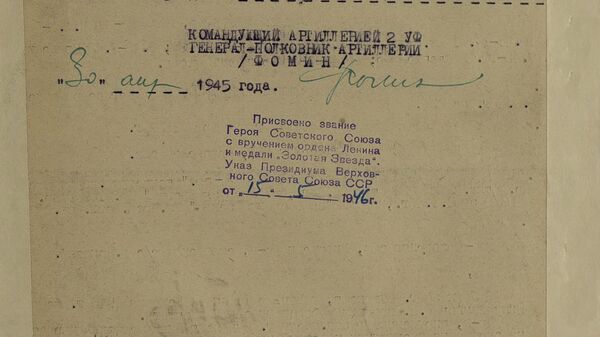 КОМАНДУЮЩИЙ АРТИЛЛЕРИЕЙ 2 УФ
ГЕНЕРАЛ-ПОЛКОВНИК АРТИЛЛЕРИИ
/ФОМИН/
"30" апр 1945 года. Фомин
Присвоено звание
Героя Советского Союза
с вручением ордена Ленина
и медали „Золотая Звезда".
Указ Президиума Верхов-
ного Совета Союза ССР
от 15 - 5 1946г.